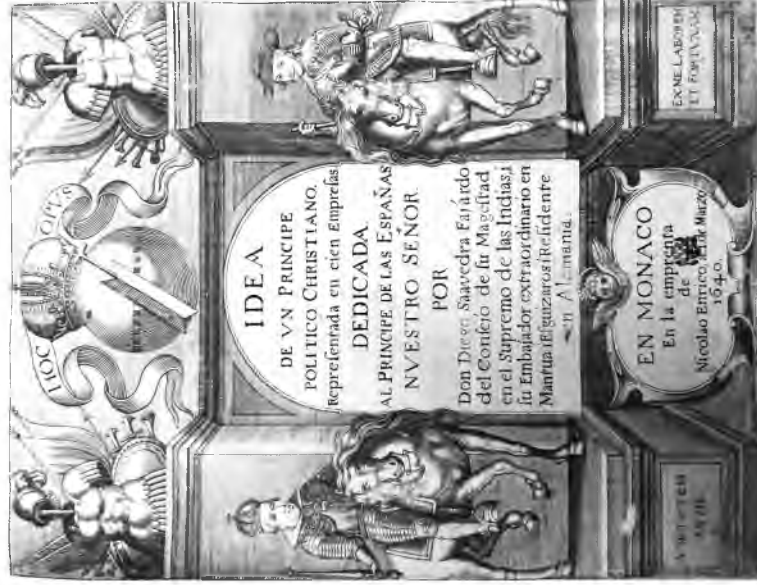 HOC OPVS
IDEA
DE VN PRINCIPE
POLITICO CHRISTIANO.
Repreſenrada en cien Empreſas
DEDICADA.
AL PRINCIPE DE LAS ESPAÑAS
NVESTRO SEÑOR
POR
Don Diego Saavedra Faxardo
del Conſeio de ſu Mageſtad
en el Supremo de las Indias,i
ſu Embajador extraordinario en
Mantua iEſguizaros iReſidente
en Alemania.
EN MONACO
En la emprenta
de
Nicolao Enrico, a 1 de Marzo
1640.
EX ME LABOREM
ET FORTVNAM